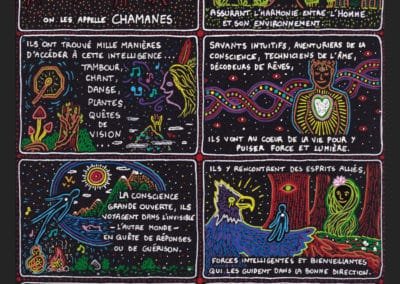 ON LES APPELLE CHAMANES
ASSURANT L'HARMONIE ENTRE L'HOMME
ET SON ENVIRONNEMENT.
ILS ONT TROUVÉ MILLE MANIÈRES
D'ACCÉDER À CETTE INTELLIGENCE...
TAMBOUR,
CHANT,
DANSE,
PLANTES,
QUÊTES
DE
VISION
SAVANTS INTUITIFS, AVENTURIERS DE LA
CONSCIENCE, TECHNICIENS DE L'ÂME,
DÉCODEURS DE RÊVES,
ILS VONT AU COEUR DE LA VIE POUR Y
PUISER FORCE ET LUMIÈRE.
LA CONSCIENCE
GRANDE OUVERTE, ILS
VOYAGENT DANS L'INVISIBLE
- L'AUTRE MONDE -
EN QUÊTE DE RÉPONSES
OU DE GUÉRISON.
ILS Y RENCONTRENT DES ESPRITS ALLIÉS,
FORCES INTELLIGENTES ET BIENVEILLANTES
QUI LES GUIDENT DANS LA BONNE DIRECTION.